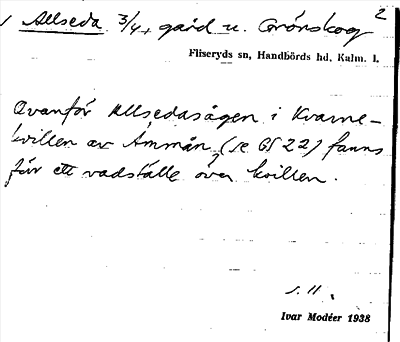 Allseda 3/4, gård u. Grönskog 2
Fliseryds sn, Handbörds hd, Kalm. l.
Ovanför Allsedasågen i Kvarne-
kvillen av Åmmån, (se GS 22) fanns
förr ett vadställe över kvillen.
s. 11.
Ivar Modéer 1938